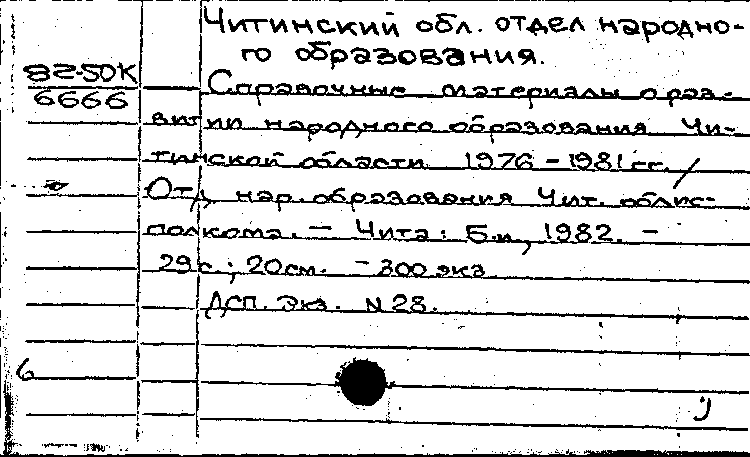 Читинский обл. отдел народно-
го образования.
82-50К
6666
Справочные материалы о раз-
витии народного образования Чи-
тинской области 1976-1981 гг. /
Отд нар. образования Чит. облис-
полкома. — Чита: Б.и, 1982. -
29 с.; 20 см. - 300 экз
ДСП. Экз. N 28.
6